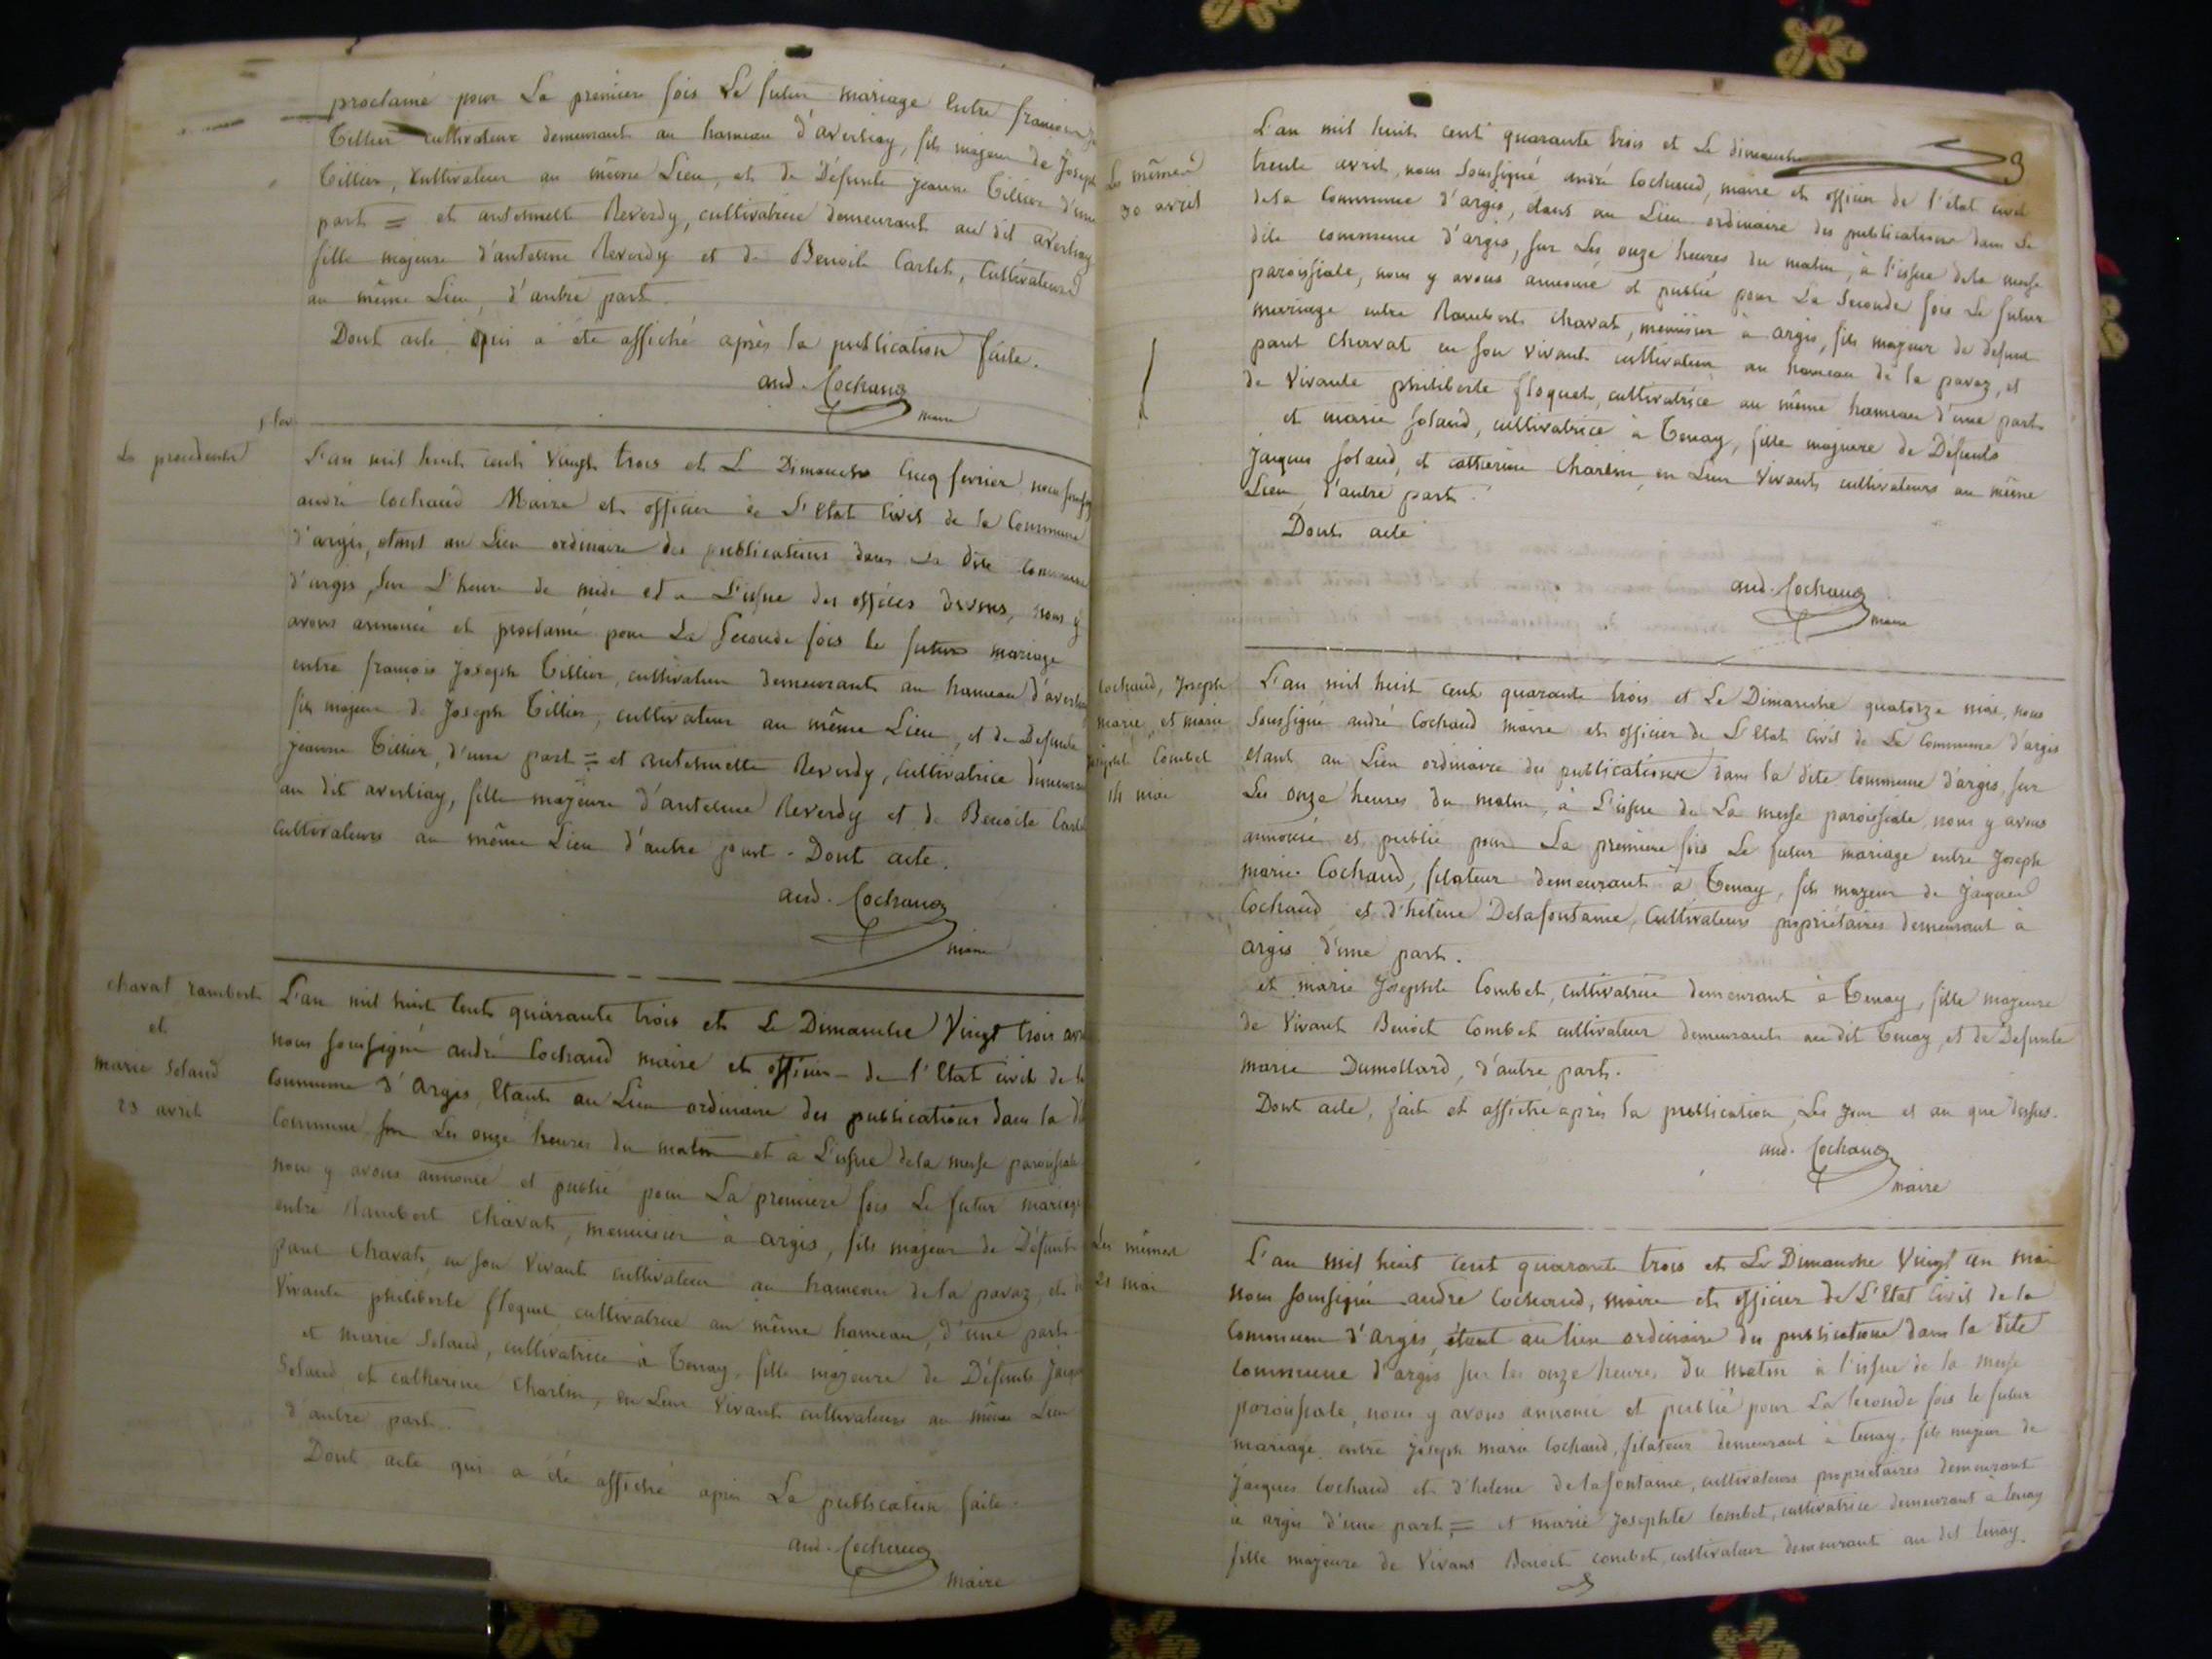 proclamé pour La première fois Le futur mariage Entre françois
Tillier cultivateur demeurant au hameau d'averliaz, fils majeur de Joseph
Tillier, cultivateur au même Lieu, et de Défunte jeanne Tillier d'une
part = et antelmette Reverdy, cultivatrice demeurant au dit averliaz
fille majeure d'antelme Reverdy et de Benoite Carlet, Cultivateurs
au même Lieu, d'autre part.
Dont acte qui a été affiché après la publication faite.
and. Cochaud
maire
5 fev.
Les précédents
L'an mil huit cent vingt trois et Le Dimanche Cinq fevrier nous
andré Cochaud Maire et officier de L'Etat Civil de la Commune
d'argis, étant au Lieu ordinaire des publications dans La Dite Commune
d'argis, sur L'heure de midi et a L'issue des offices divins, nous y
avons annoncé et proclamé pour La Seconde fois le futur mariage
entre françois Joseph Tillier, cultivateur demeurant au hameau
fils majeur de Joseph Tillier, cultivateur au même Lieu, et de Défunte
jeanne Tillier, d'une part = et antelmette Reverdy, Cultivatrice
au dit averliaz, fille majeure d'antelme Reverdy et de Benoite
cultivateurs au même Lieu d'autre part - Dont acte.
and. Cochaud
maire
chavat rambert
et
marie Soland
23 avril
L'an mil huit Cent quarante trois et Le Dimanche Vingt trois
nous soussigné andré Cochaud maire et officier de l'Etat civil de
Commune d'Argis, Etant au Lieu ordinaire des publications dans la
Commune sur Les onze heures du matin et à L'issue dela messe paroissiale
nous y avons annoncé et publié pour La première fois Le futur mariage
entre Rambert Chavat, menuisier à argis, fils majeur de Défunt
paul Chavat, en son vivant cultivateur au hameau dela pavaz, et
Vivante philiberte floquet cultivatrice au même hameau, d'une part
et marie Soland, cultivatrice à Tenay, fille majeure de Défunts
Soland et catherine Charlin, en Leur Vivant cultivateurs au même Lieu
d'autre part.
Dont acte qui a été affiché après La publication faite.
and. Cochaud
maire
Les mêmes
30 avril
L'an mil huit cent quarante trois et Le dimanche
trente avril, nous soussigné andré Cochaud, maire et officier de l'état civil
dela Commune d'argis, étant au Lieu ordinaire des publications dans La
dite commune d'argis, sur Les onze heures du matin, à l'issue dela messe
paroissiale, nous y avons annoncé et publié pour La Seconde fois Le futur
mariage entre Rambert Chavat, menuisier à argis, fils majeur de défunt
paul Chavat en son vivant cultivateur au hameau de la pavaz, et
de Vivante philiberte floquet, cultivatrice au même hameau d'une part
et marie Soland, cultivatrice à Tenay, fille majeure de Défunts
Jacques Soland, et catherine Charlin en Leur vivants cultivateurs au même
Lieu, d'autre part.
Dont acte
and. Cochaud
maire
Cochaud, Joseph
marie, et marie
Combet
14 mai
L'an mil huit cent quarante trois et Le Dimanche quatorze mai, nous
Soussigné andré Cochaud maire et officier de L'Etat Civil de La Commune d'argis
étant au Lieu ordinaire des publications dans la dite Commune d'argis, sur
Les onze heures du matin, à L'issue de La messe paroissiale, nous y avons
annoncé et publié pour La première fois Le futur mariage entre Joseph
marie Cochaud, filateur demeurant à Tenay, fils majeur de Jacques
Cochaud et d'hélène Delafontaine, Cultivateurs propriétaires demeurant à
argis d'une part.
et marie Josephte Combet, cultivatrice demeurant à Tenay, fille majeure
de Vivant Benoit Combet cultivateur demeurant au dit Tenay, et de Défunte
marie Dumollard, d'autre part.
Dont acte, fait et affiché après la publication, Les jour et an que dessus.
and. Cochaud
maire
Les mêmes
21 mai
L'an mil huit Cent quarante trois et Le Dimanche Vingt un mai
Nous soussigné andré Cochaud, maire et officier de L'Etat Civil de la
Commune d'Argis, étant au lieu ordinaire des publications dans la dite
Commune d'argis sur les onze heures du matin à l'issue de la messe
paroissiale, nous y avons annoncé et publié pour La Seconde fois le futur
mariage entre Joseph marie Cochaud, filateur demeurant à tenay, fils majeur de
Jacques Cochaud et d'hélène delafontaine, cultivateurs propriétaires demeurant
à argis d'une part, = et marie Josephte Combet, cultivatrice demeurant à tenay
fille majeure de Vivans Benoit Combet, cultivateur demeurant au dit tenay.